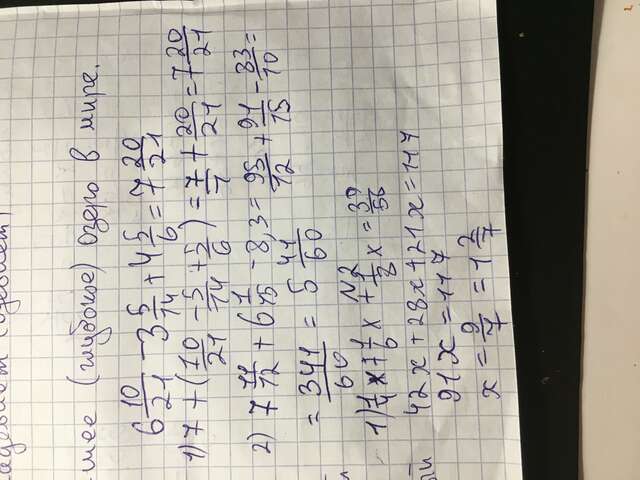 шее (глубокое) озеро в мире.
6 10/21 - 3 5/14 + 4 5/6 = 7 20/21
1) 7 + (10/21 - 5/14 + 5/6) = 7/1 + 20/21 = 7 20/21
2) 7 11/12 + 6 1/15 - 8,3 = 95/12 + 91/15 - 83/10 =
= 341/60 = 5 41/60
№2
1) 1/4 x + 1/6 x + 1/8 x = 39/56
42x + 28x + 21x = 117
91x = 117
x = 9/7 = 1 2/7